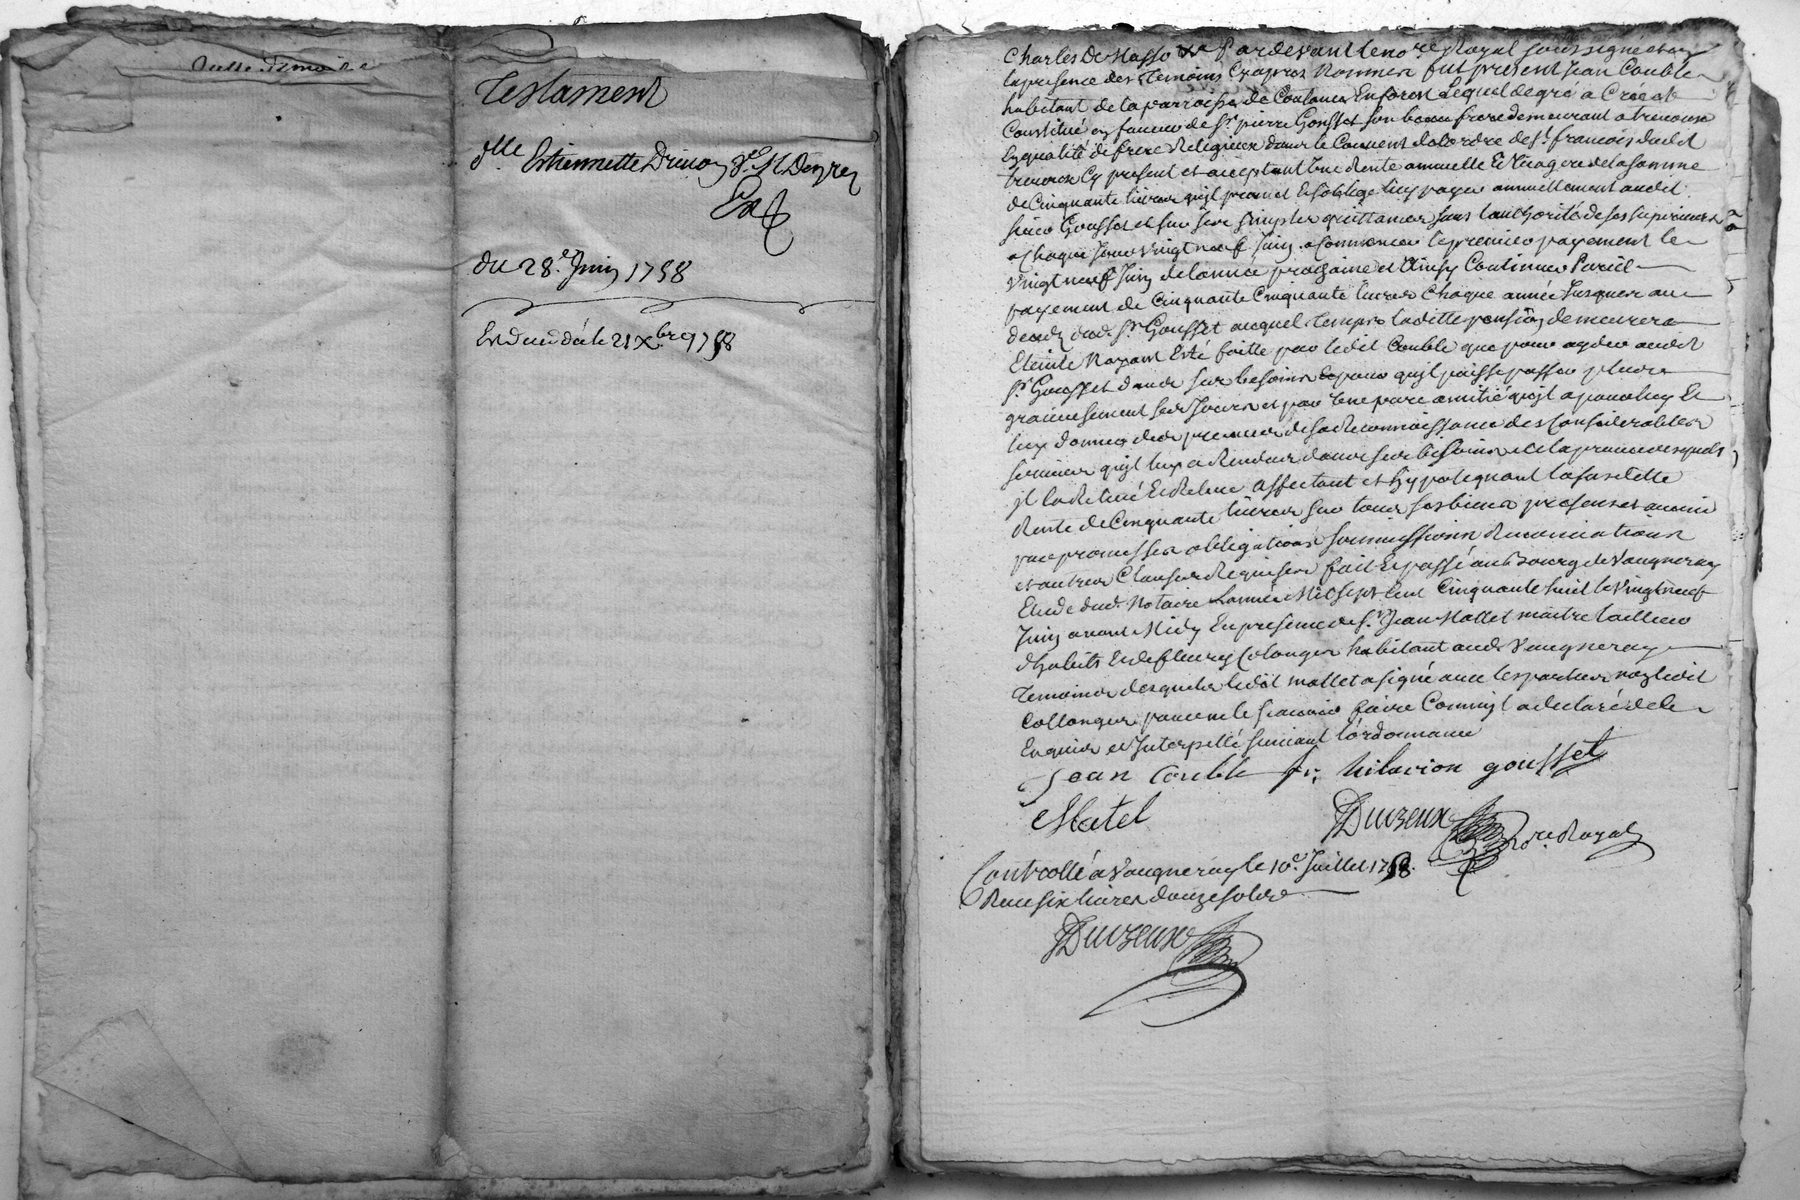 Testament
dlle Estiennette
du 28.e Juin 1758
Expedié le 21 Xbre 1758
Charles De Masso Pardevant le no.re Royal soussigné et en
la presence des Temoins Cyapres Nommés fut present Jean Couble
habitant de la parroisse de Coulanes En forest Lequel de gré a Créé et
Constitué en faveur de Sr pierre Gousset son beau frere demeurant a trevoux
En qualité de frere Religieux dans le Couvent de l'ordre de St francois dudit
trevoux Cy present et acceptant Une Rente annuelle Et Viagere de la somme
de Cinquante livres qu'jl promet Et s'oblige luy payer annuellement audit
sieur Gousset et sur ses simples quittances sans l'authorité de ses superieurs
a Chaque jour vingt neuf Juin a Commencer le premier payement le
vingt neuf Juin de lannée prochaine et Ainsy Continuer Pareil
payement de Cinquante Cinquante livres Chaque année Jusques au
deces dud. Sr Gousset auquel temps laditte pension demeurera
Eteinte Nayant Esté faitte par ledit Couble que pour ayder audit
Sr Gousset dans ses besoins pour qu'jl puisse passer plus
gratieusement ses Jours et par Une pure amitié qu'jl a pour luy Et
luy donner des preuves de sa Reconnoissance des Considerables
services qu'jl luy a Rendus dans ses besoins de la preuve desquels
jl la Relevé Et Releve Affectant et hypotequant
Rente de Cinquante livres sur tous ses biens presents et avenir
par promesses obligations soumissions Renonciations
et autres Clauses Requises fait Et passé au Bourg de Vaugneray
Etude dud. Notaire Lannée Mil sept Cent Cinquante huit le Vingt neuf
Juin avant Midy En presence de Sr Jean Mattet maitre tailleur
d'habits Et de fleury Colonges habitant aud. Vaugneray
temoins desquels ledit mattet a signé avec les parties non ledit
Collonges pour ne le scavoir faire Comm'jl a declaré de ce
Enquis et Interpellé suivant l'ordonnance
Jean Couble fr. hilarion gousset
Matel
Duvzeux No.re Royal
Controllé a Vaugneray le 10.e Juillet 1758.
Receu six livres douze sols
Duvzeux